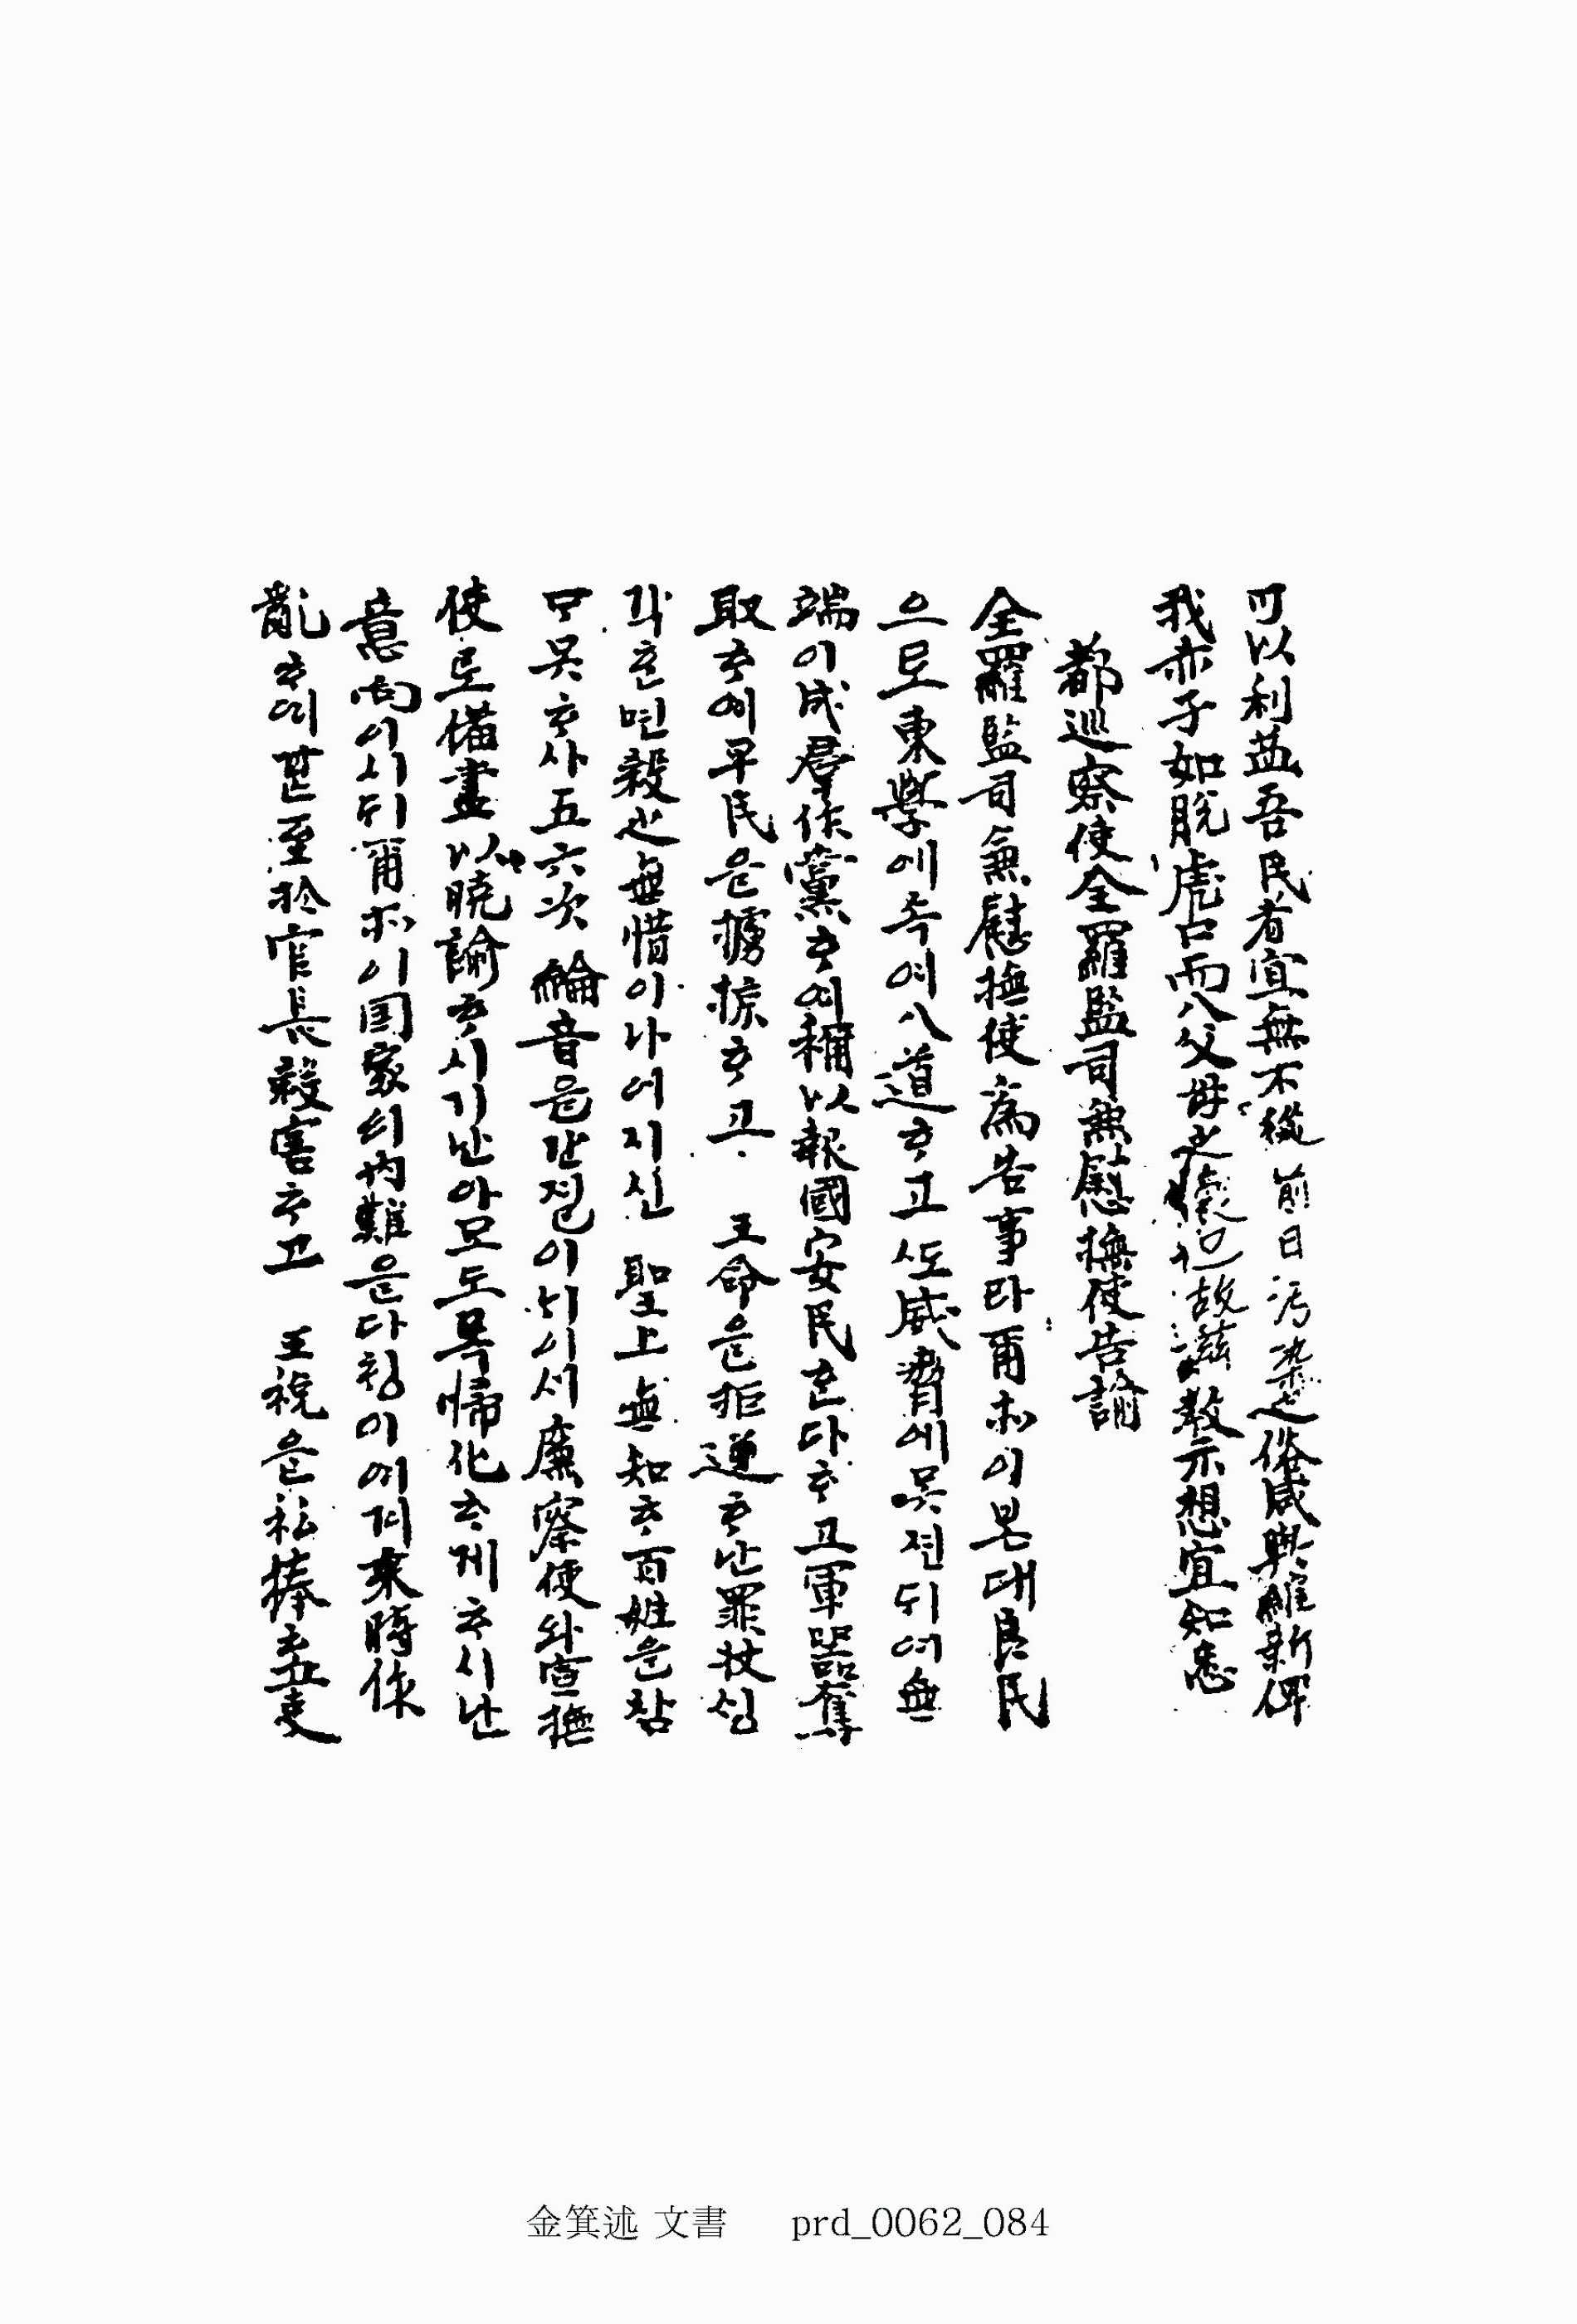 可以利益吾民者宜無不從前日汚染之俗咸與維新俾
我赤子如脫虎口而入父母之懷也故玆敎示想宜知悉
都巡察使全羅監司兼慰撫使告諭
全羅監司兼慰撫使爲告事라爾等이본대良民
으로東學에속여入道ᄒᆞ고ᄯᅩ威脅에못젼ᄃᆡ여無
端이成羣作黨ᄒᆞ여稱以報國安民ᄒᆞᆫ다ᄒᆞ고軍器奪
取ᄒᆞ여平民을擄掠ᄒᆞ고 王命을拒逆ᄒᆞ난罪狀싱
각ᄒᆞᆫ면殺之無惜이나어지신 聖上無知ᄒᆞ百姓을참
아못ᄒᆞ사五六次 綸音을간졀이ᄂᆡ이셔廉察使와宣撫
使로備盡以曉諭ᄒᆞ시기난아모도록歸化ᄒᆞ게ᄒᆞ시난
意向이시ᄃᆡ爾等이国家의內難을다힝이여겨乘時作
亂ᄒᆞ여 至於官長殺害ᄒᆞ고 王稅을私捧